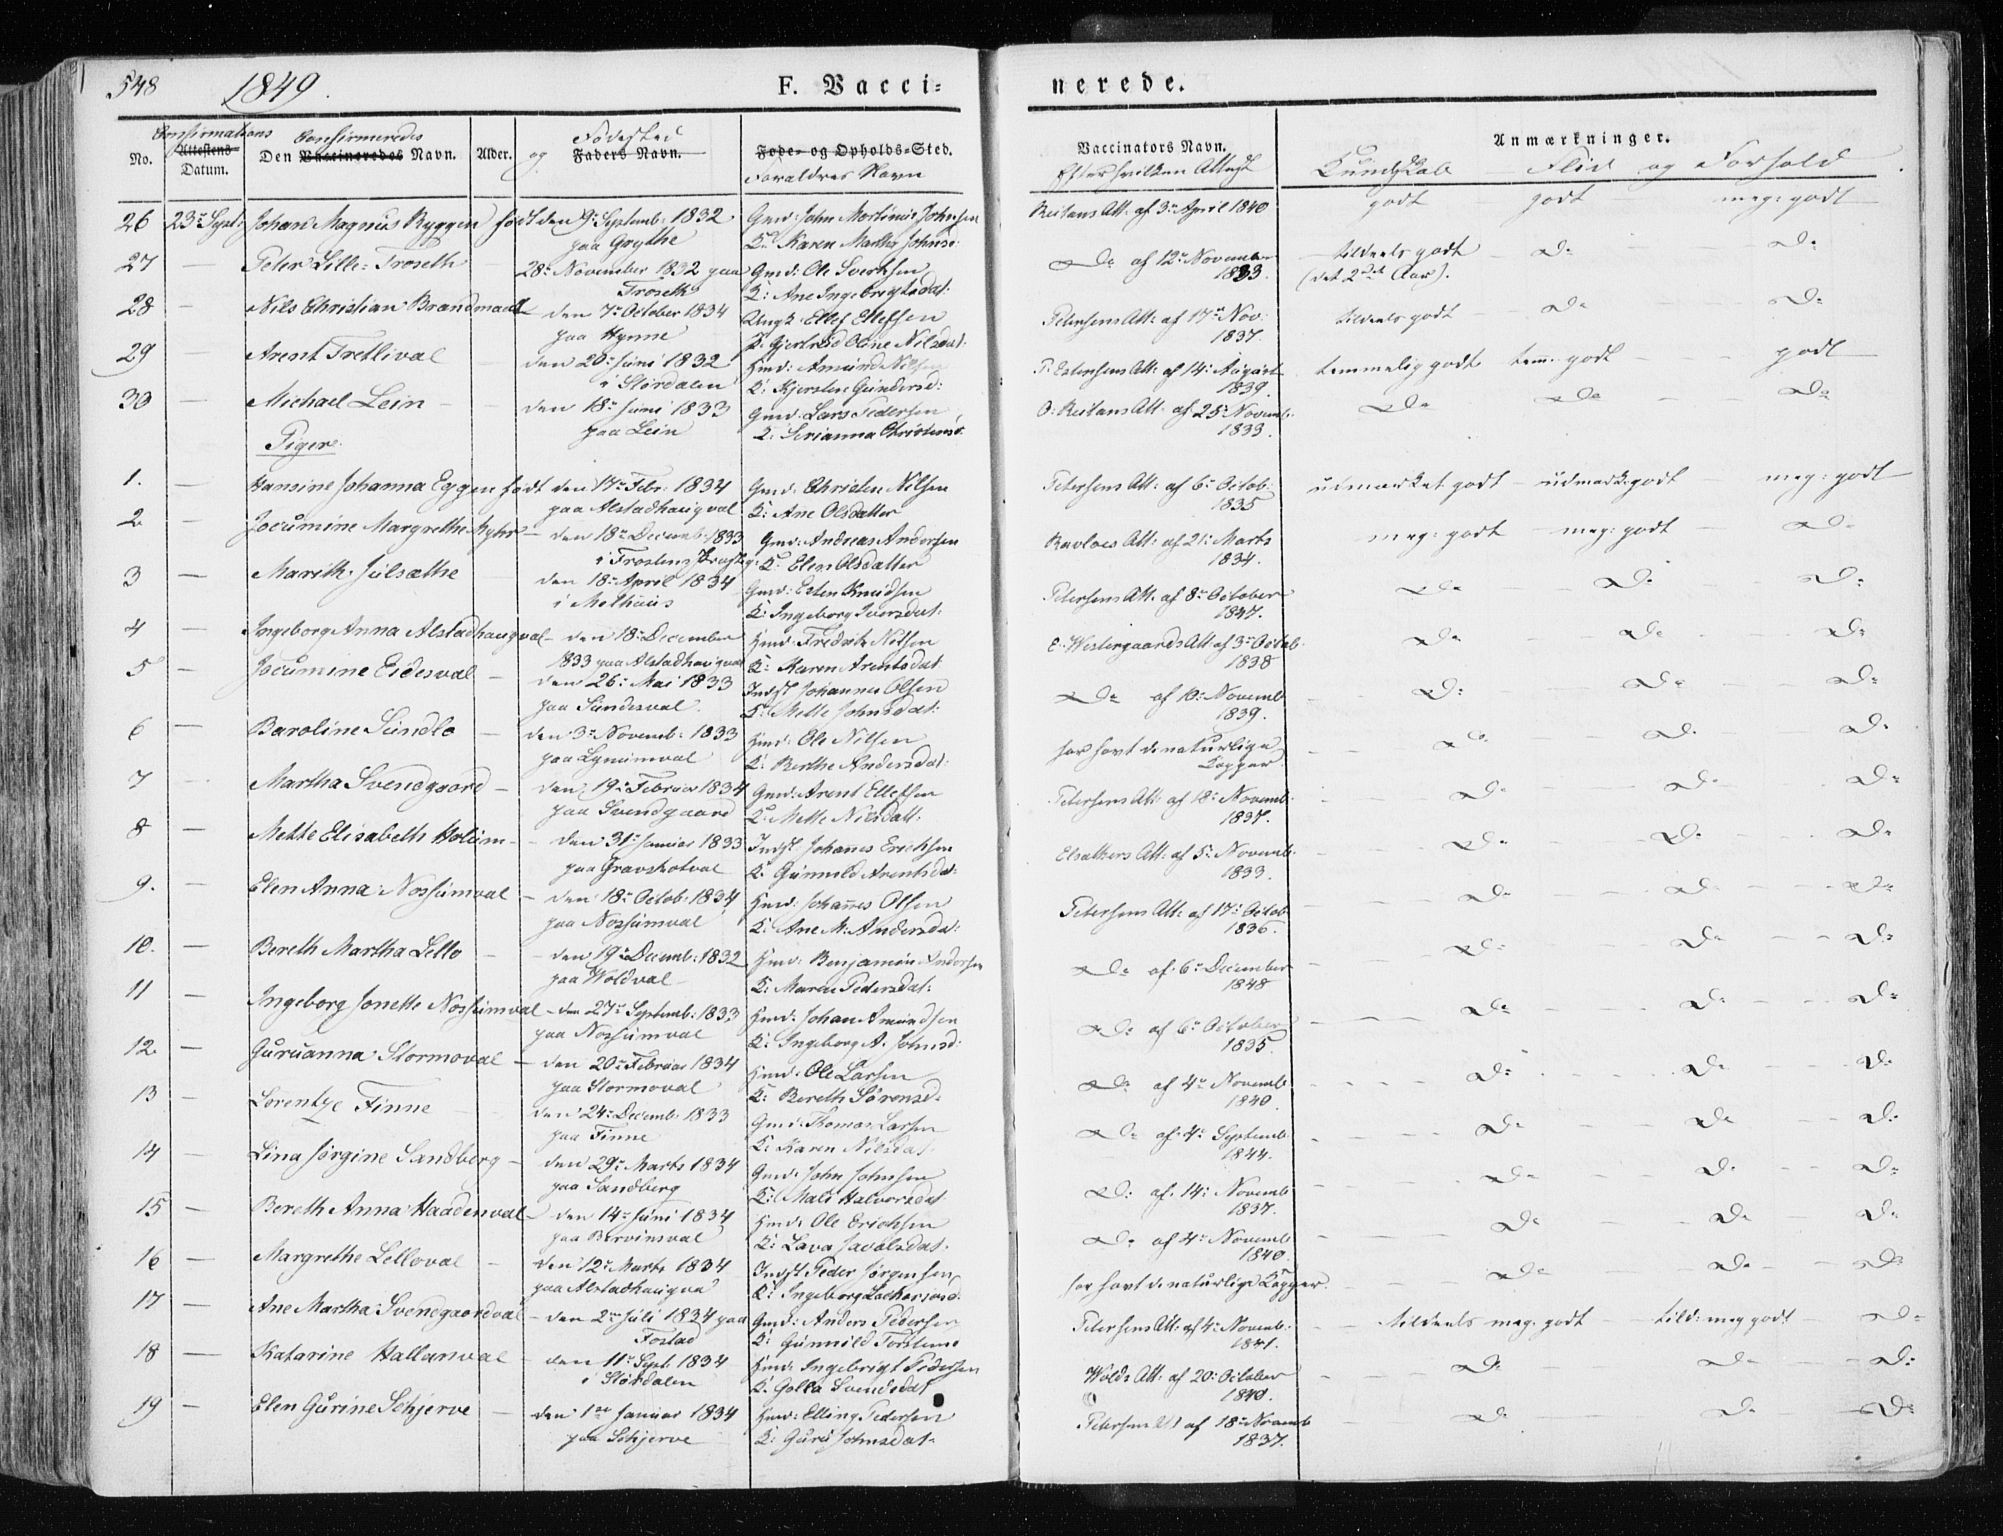 548 1849. F. Vacci= nerede.
No. Confirmations Attestens Datum. Den Confirmeredes Vaccineredes Navn. Alder. og Fødested Faders Navn. Føde= og Opholds=Sted. Forældres Navn
Vaccinators Navn. Efter hvilken Attest Anmærkninger. Kundskab - Flid og Forhold
26 23de Septr Johan Magnus Ryggen født den 9de Septemb: 1832 Gmd: John Mortinus Johnsen Reitans Att: af 3de April 1840 godt godt meg: godt
paa Grythe K: Karen Martha Johnsd:
27 — Peter Lille=Troseth 28de November 1832 paa Gmd: Ole Svertsen Do af 12te November tildeels godt - Do - Do
Troseth K: Ane Ingebrigtsdat: 1833. (det 2det Aar).
28 — Nils Christian Brandmoel - den 7de October 1834 Ungk: Ellef Ellefsen Petersens Att: af 17de Nov: tildeels godt - Do - Do
paa Hynne P: Gjertrud Oline Nilsdat: 1837.
29 — Arent Tretlival - den 20de Juni 1832 Hmd: Amund Nilsen P: Petersens Att: af 14de August temmelig godt tem: godt - godt
i Størdalen K: Kjersten Gundersd: 1839.
30 — Michael Lein - den 18de Juni 1833 Gmd: Lars Pedersen O: Reitans Att: af 25de Novemb: Do Do Do
paa Lein K: Serianna Christensd: 1833.
Piger.
1. — Hansine Johanna Eggen født den 17de Febr: 1834 Gmd: Christen Nilsen Petersens Att: af 6te Octob: udmærket godt - udmærk: godt meg: godt
paa Alstadhaugval K: Ane Olsdatter 1835
2 — Jocumine Margrethe Myhr - den 18de Decemb: 1833 Gmd: Andreas Andersen Ravloes Att: af 21de Marts meg: godt - meg: godt - Do
i Frostens Præsteg: K: Elen Olsdatter 1834.
3 — Marith Julsæthe - den 18de April 1834 Gmd: Esten Knudsen Petersens Att: af 8de October Do - Do - Do
i Melhuus K: Ingeborg Iversdat: 1847.
4 — Ingeborg Anna Alstadhaugval - den 18de December Hmd: Fredrik Nilsen E. Westergaards Att: af 3de Octob: Do - Do - Do
1833 paa Alstadhaugval K: Karen Arentsdat 1838
5 — Jocumine Eidesval - den 26de Mai 1833 Indst Johannes Olsen Do af 10de Novemb: Do - Do - Do
paa Sundesval. K: Mette Johnsdat: 1839.
6 — Baroline Sundlo - den 3de Novemb: 1833 Hmd: Ole Nilsen har havt de naturlige Do - Do - Do
paa Lynumval K: Berthe Andersdat: Kopper
7 — Martha Svendgaard - den 19de Februar 1834 Gmd: Arent Ellefsen Petersens Att: af 18de Novemb: Do - Do - Do
paa Svendgaard K: Mette Nilsdatt: 1837.
8 — Mette Elisabeth Holum - den 31te Januar 1833 Indst. Johanes Erichsen Elsæthers Att: af 5te Novemb: Do - Do - Do
paa Gravskotval K: Gunnild Arentsdat: 1833.
9. — Elen Anna Nossumval - den 18de Octob: 1834 Hmd: Johannes Olsen Petersens Att: af 17de Octob: Do - Do - Do
paa Nossumval K: Ane M: Andersdat: 1836.
10. — Bereth Martha Lello - den 19de Decemb: 1832 Hmd: Benjamin Andersen Do af 6te December Do - Do - Do
paa Woldval K: Maren Pedersdat: 1848
11 — Ingeborg Jonette Nossumval - den 27de Septemb: 1833 Hmd: Johan Amundsen Do af 6te October Do - Do - Do
paa Nossumval K: Ingeborg A. Johnsd: 1835.
12. — Guruanna Stormoval - den 20de Februar 1834 Hmd: Ole Larsen Do af 4de Novemb: Do - Do - Do
paa Stormoval K: Bereth Sørensd: 1840
13 — Lorentze Finne - den 24de Decemb: 1833 Gmd: Thomas Larsen Do af 4de Septemb: Do - Do - Do
paa Finne K: Karen Nilsdat. 1844.
14 — Lina Jørgine Sandberg - den 29de Marts 1834 Gmd: John Johnsen Do af 14de Novemb: Do - Do - Do
paa Sandberg K: Mali Halvorsdat 1837.
15 — Bereth Anna Haadenval - den 14de Juni 1834 Hmd: Ole Erichsen Do af 4de Novemb: Do - Do - Do
paa Bervinsval K: Lava Jacobsdat. 1840.
16 — Margrethe Lelloval - den 12te Marts 1834 Indst Peder Jørgensen har havt de naturlige Kopper. Do - Do - Do
paa Alstadhaugva K: Ingeborg Zachariasd:
17 — Ane Martha Svendgaardval - den 2den Juli 1834 paa Gmd: Anders Pedersen Petersens Att: af 4de Novemb: tildeels meg: godt - tild: meg godt - Do
Fostad K: Gunnild Torstens 1841.
18 — Katarine Hallanval - den 11te Sept: 1834 Hmd: Ingebrigt Pedersen Wolds Att: af 20de October Do - Do - Do
i Størdalen K: Golla Svendsdat 1840.
19 — Elen Gurine Schjerve - den 1ste Januar 1834 Hmd: Elling Pedersen Petersens Att af 18de Novemb Do - Do - Do
paa Schjerve K: Guru Johnsdat 1837.